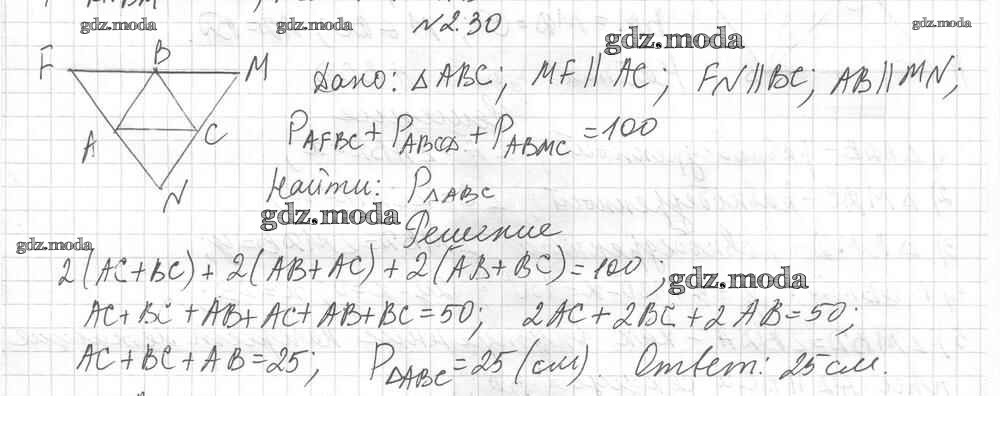 gdz.moda gdz.moda N2.30 gdz.moda
gdz.moda
F B M
A C
N
Дано: △ABC; MF || AC; FN || BC; AB || MN;
P_AFBC + P_ABCD + P_ABMC = 100
Найти: P_△ABC
gdz.moda
Решение
gdz.moda
2(AC+BC) + 2(AB+AC) + 2(AB+BC) = 100;
gdz.moda
AC+BC+AB+AC+AB+BC=50; 2AC+2BC+2AB=50;
AC+BC+AB=25; P_△ABC=25 (см). Ответ: 25 см.